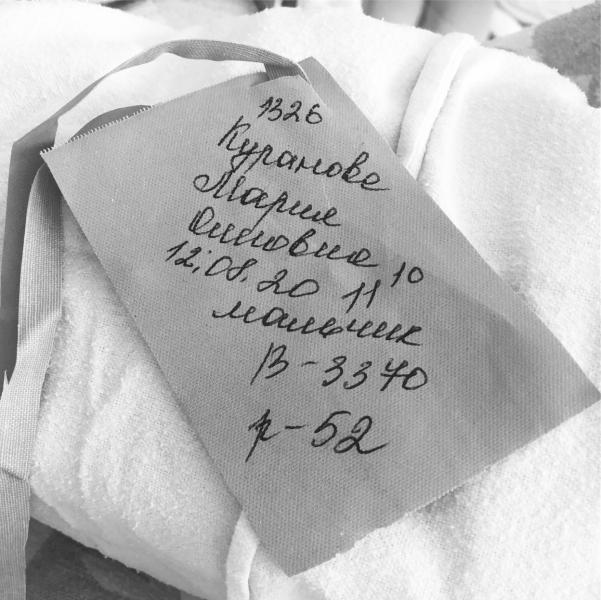 1326
Куранова
Мария
12.08.20 11 10
мальчик
В-3370
р-52